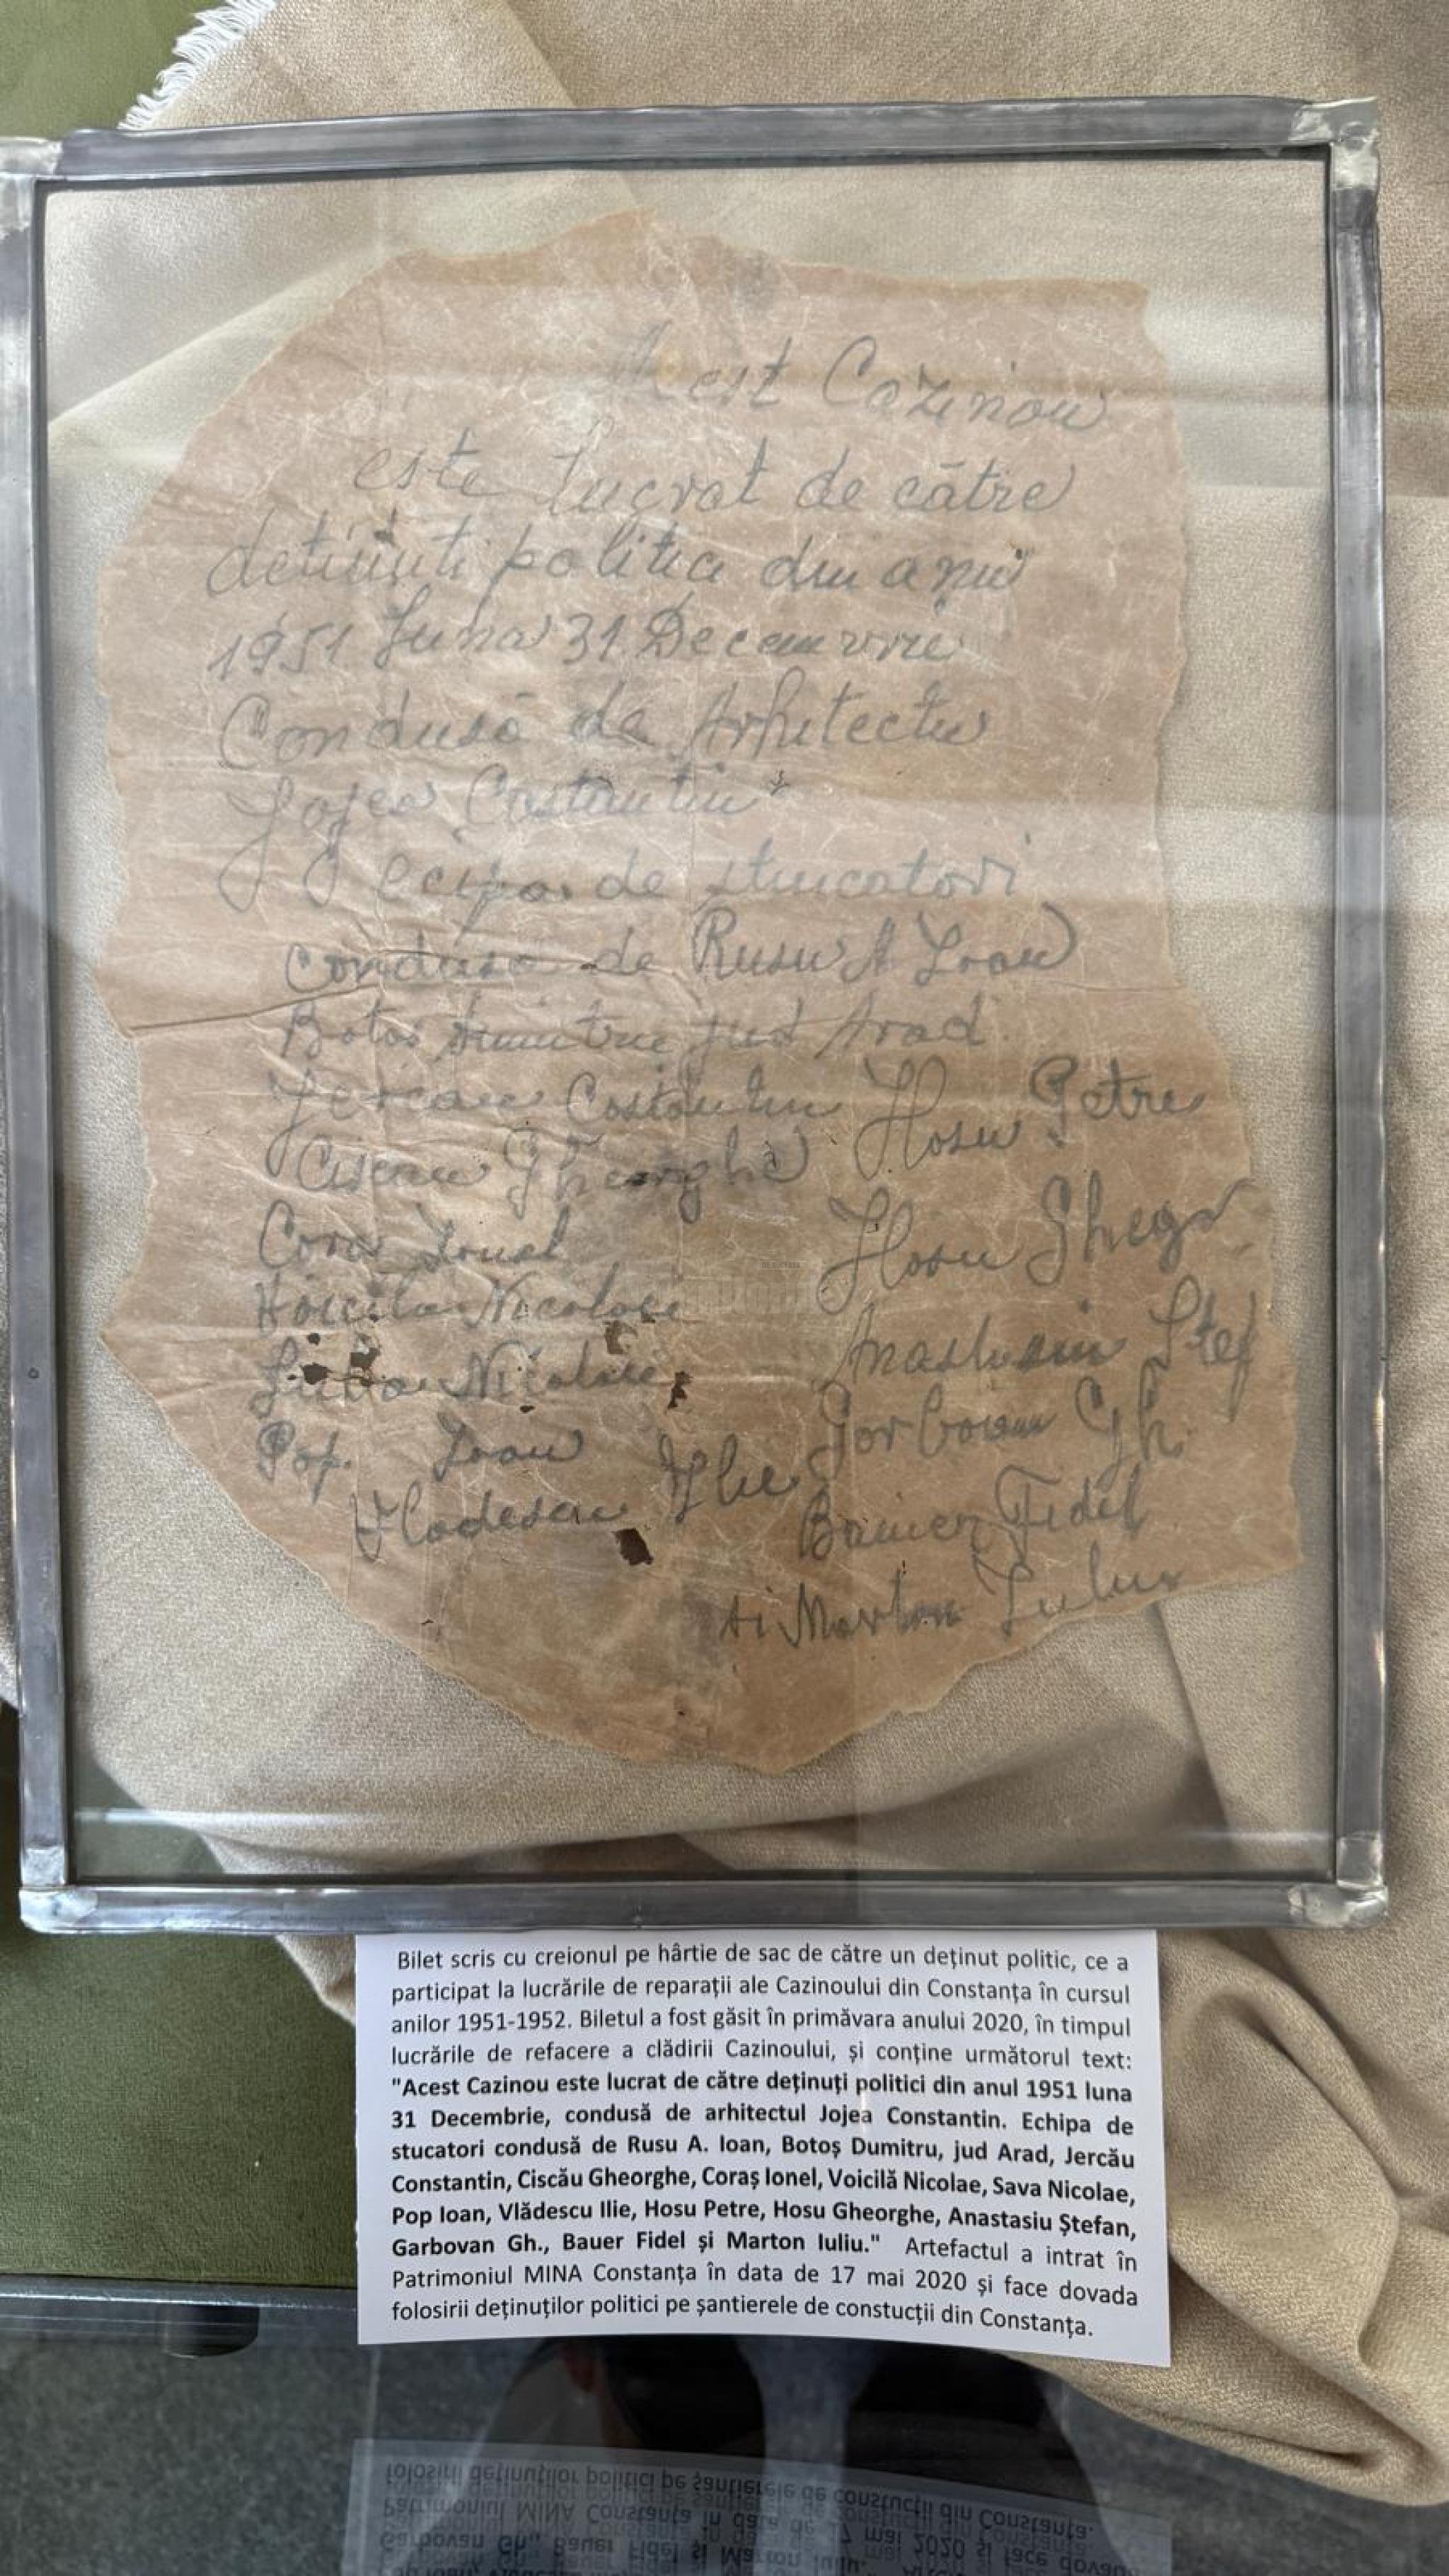 Acest Cazinou
este lucrat de către
detinuti politici din anu
1951 Luna 31 Decemvrie
Condusă de Arhitectu
Jojea Costantin
ecipa de stucatori
condusa de Rusu A Ioan
Botos Dumitru jud Arad
Jercau Costantin Hosu Petre
Ciscau Gheorghe
Coras Ionel Hosu Ghegr
Voicila Nicolae
Sava Nicolae Anastasiu Stef
Pop Ioan Gorbovan Gh.
Vladescu Ilie
Bauer Fidel
si Marton Iuliu
Bilet scris cu creionul pe hârtie de sac de către un deținut politic, ce a
participat la lucrările de reparații ale Cazinoului din Constanța în cursul
anilor 1951-1952. Biletul a fost găsit în primăvara anului 2020, în timpul
lucrările de refacere a clădirii Cazinoului, și conține următorul text:
"Acest Cazinou este lucrat de către deținuți politici din anul 1951 luna
31 Decembrie, condusă de arhitectul Jojea Constantin. Echipa de
stucatori condusă de Rusu A. Ioan, Botoș Dumitru, jud Arad, Jercău
Constantin, Ciscău Gheorghe, Coraș Ionel, Voicilă Nicolae, Sava Nicolae,
Pop Ioan, Vlădescu Ilie, Hosu Petre, Hosu Gheorghe, Anastasiu Ștefan,
Garbovan Gh., Bauer Fidel și Marton Iuliu." Artefactul a intrat în
Patrimoniul MINA Constanța în data de 17 mai 2020 și face dovada
folosirii deținuților politici pe șantierele de constucții din Constanța.